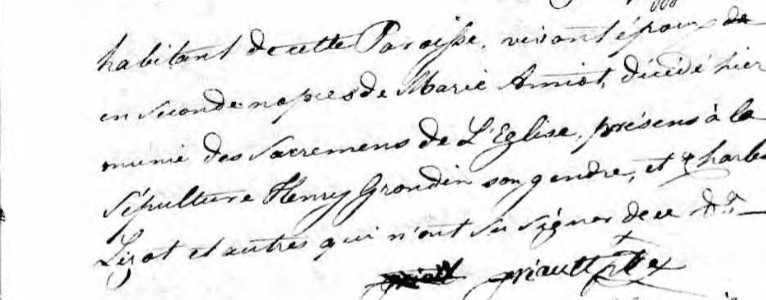 habitant de cette Paroisse, vivant époux de
en seconde nopces de Marie Amiot, décédé hier
munie des sacremens de L'Eglise, présens à la
sépulture Henry Grondin son gendre, et Charles
Lizot et autres qui n'ont su signer de ce
priault ptre